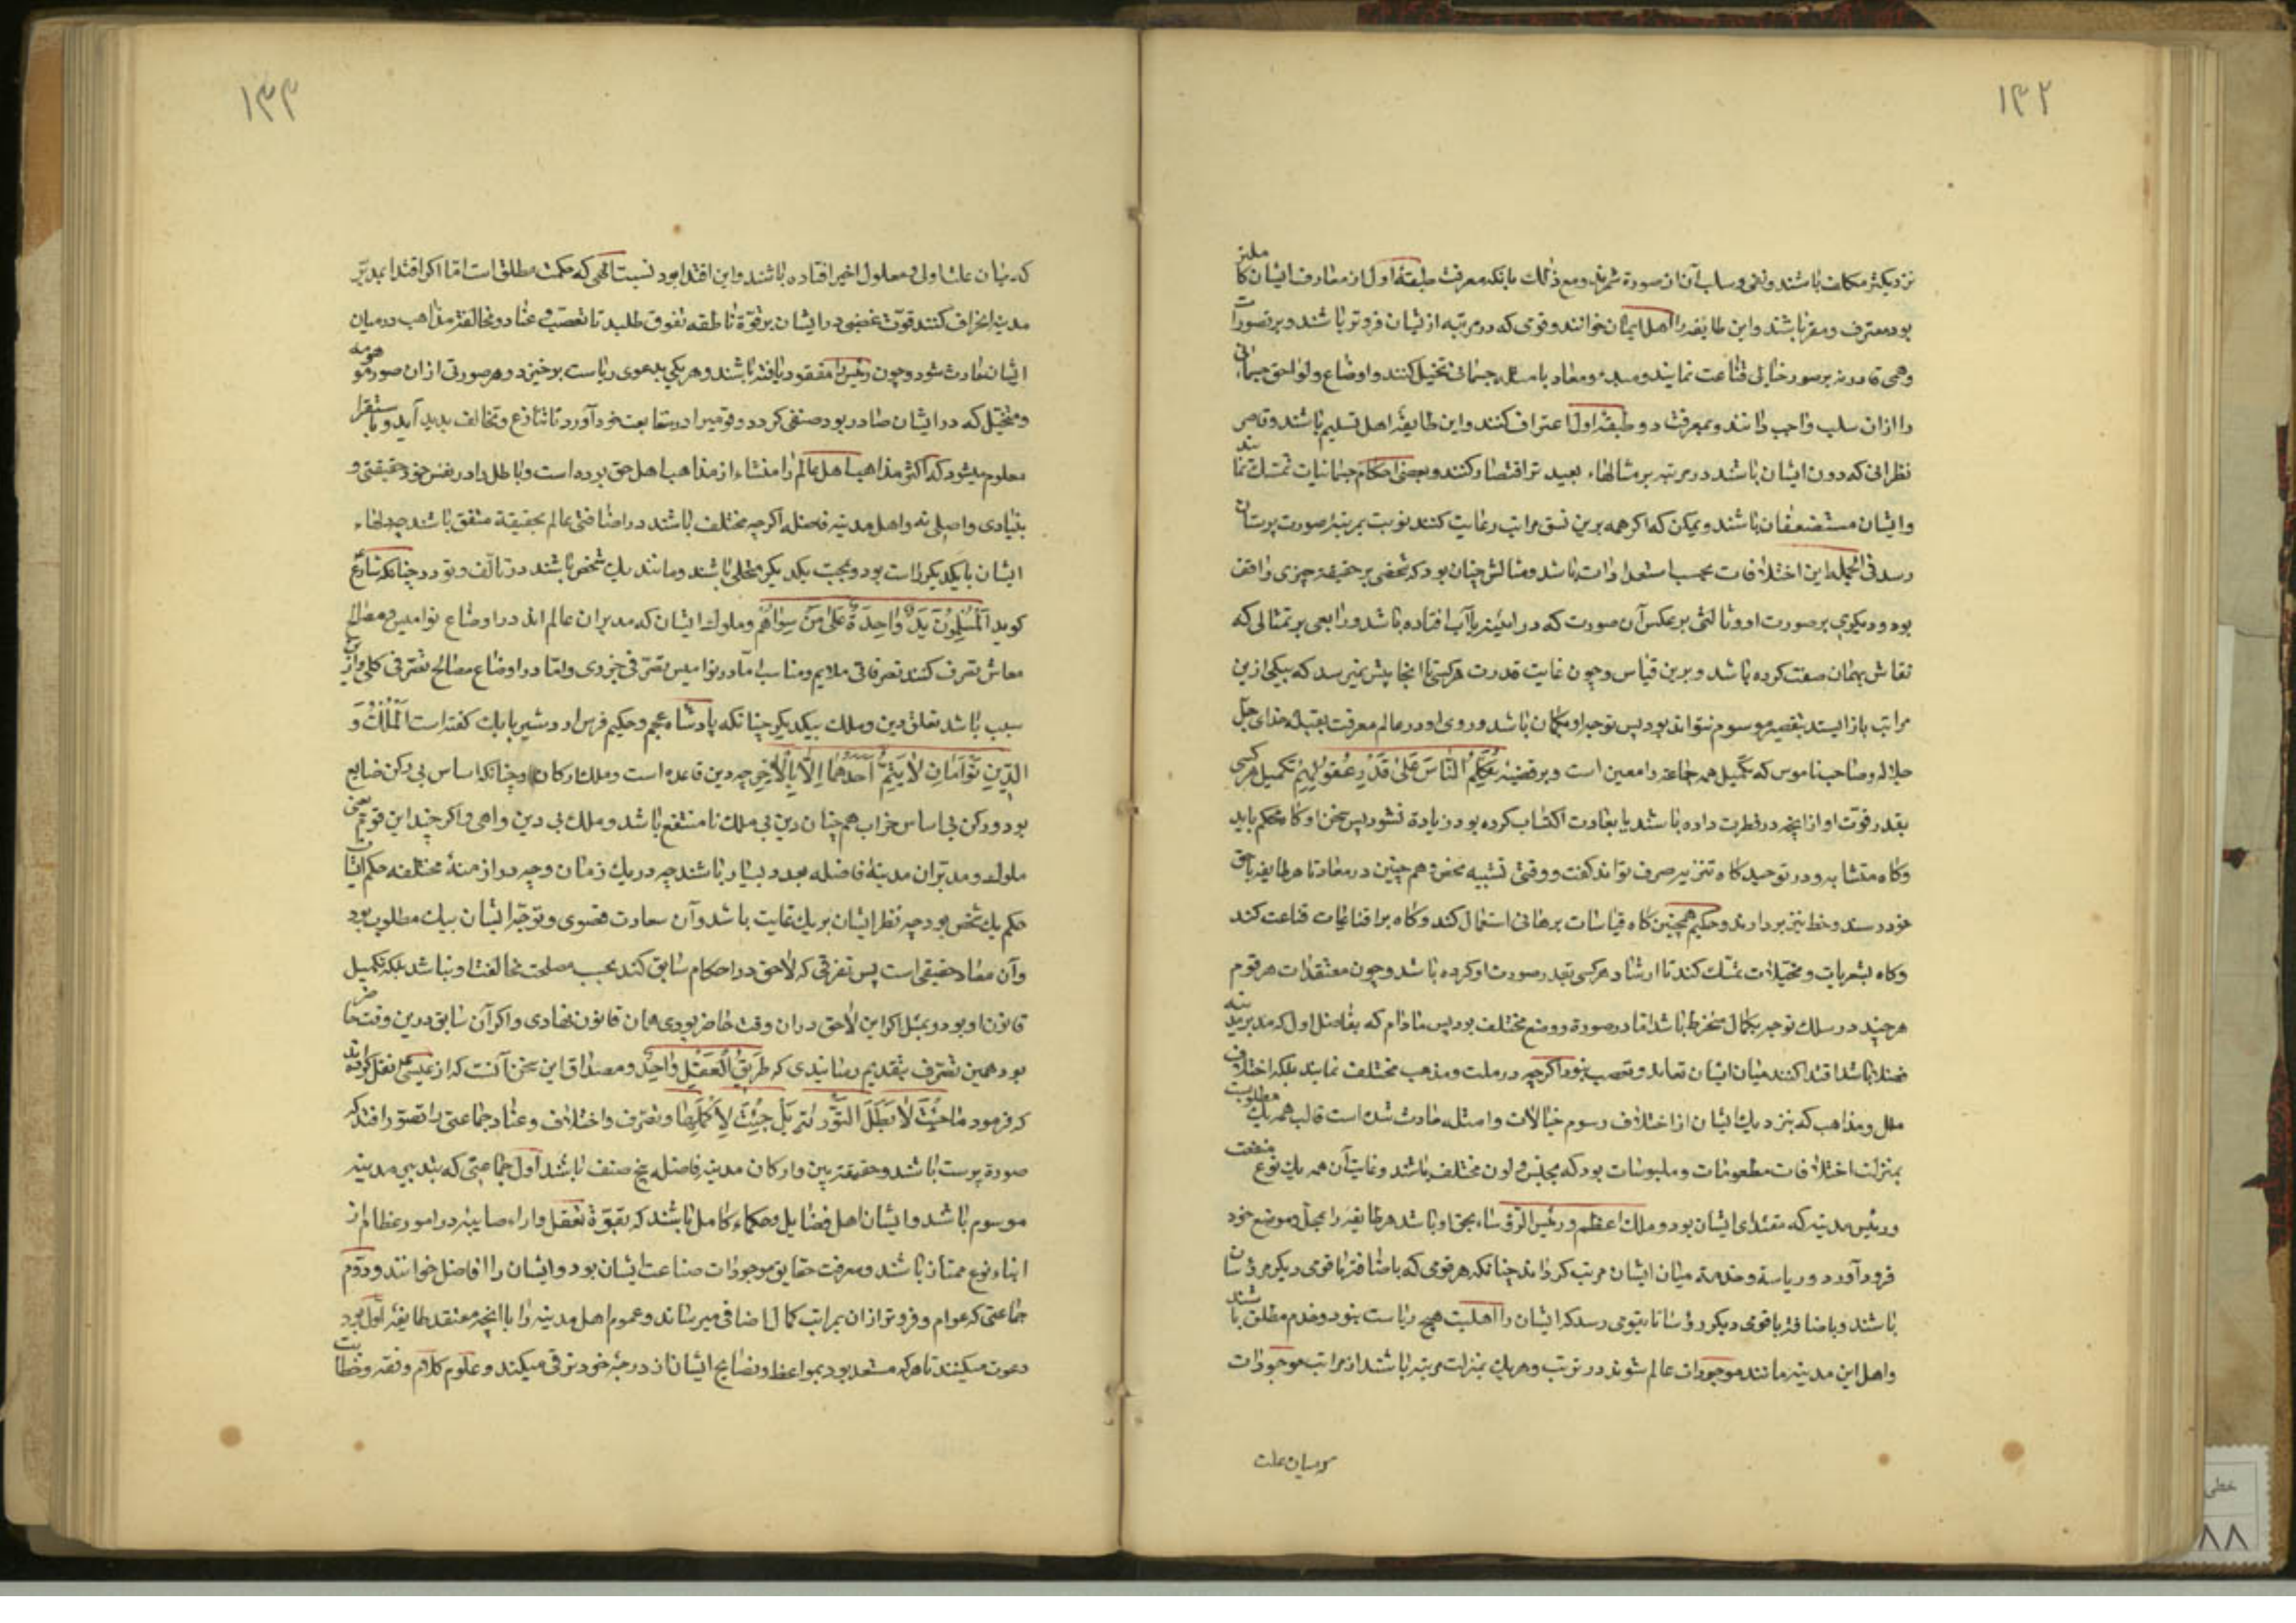 ۱۳۲
نزدیکتر مکلف باشند و نفی و سلب آن از صورة شمرند و مع ذلک بانکه معرفت طبقهٔ اول از معارف ایشان کاملتر
بود معترف و مقر باشند و این طایفه را اهل ایمان خوانند و قومی که در مرتبه از یشان فروتر باشند و بر تصورات
وهمی قادر نه بر صور خیالی قناعت نمایند و مبدء و معاد با مثله جسمانی تخیل کنند و اوضاع و لواحق جسمانی
را ازان سلب واجب دانند و بمعرفت دو طبقهٔ اول اعتراف کنند و این طایفه اهل تسلیم باشند و قاصر
نظرانی که دون ایشان باشند در مرتبه بر مثالهاء بعید تر اقتصار کنند و ببعضی احکام جسمانیات تمسک نمایند
و ایشان مستضعفان باشند و یمکن که اگر همه برین نسق مراتب رعایت کنند نوبت بمرتبهٔ صورت پرستان
رسد فی الجمله این اختلافات بحسب استعدادات باشد و مثالش چنان بود که شخصی بر حقیقة چیزی واقف
بود و دیکری بر صورت او و ثالثی بر عکس آن صورت که در آینه یا آب افتاده باشد و رابعی بر تمثالی که
نقاش بهمان صفت کرده باشد و برین قیاس و چون غایت قدرت هرکسی تا اینجا پیش نمیرسد که بیکی ازین
مراتب باز ایستد بتقصیر موسوم نتواند بود پس توجه او بکمال باشد و روی او در عالم معرفت بقبلهٔ خدای جل
جلاله و صاحب ناموس که تکمیل همه جماعة را معین است و بر قضیهٔ نُکَلِّمُ النَّاسَ عَلی قَدْرِ عُقُولِهِمْ تکمیل هر کسی
بقدر قوّت او از انچه در فطرت داده باشند یا بعادت اکتساب کرده بود زیادة نشود پس سخن او گاه محکم باید
و گاه متشابه و در توحید گاه تنزیه صرف تواند کفت و وقتی تشبیه محض هم چنین در معاد تا هر طایفه باحق
خود رسند و حظ نیز بر دارند و حکیم همچنین گاه قیاسات برهانی استعمال کند و گاه بر اقناعیات قناعت کند
و گاه بشعریات و مخیلات تمسک کند تا ارشاد هر کسی بقدر صورت او کرده باشد و چون معتقدات هر قوم
هر چند در سلک توجه بکمال منخرط باشد اما در صورة و وضع مختلف بود پس مادام که بفاضل اول که مدبر مدینه
فضلا باشد اقتدا کنند میان ایشان تعاند و تعصب نبود اگرچه در ملت و مذهب مختلف نمایند بلکه اختلاف
ملل و مذاهب که بنزدیک ایشان از اختلاف رسوم خیالات و امثله حادث شده است قالب همه یک مطلوبست
بمنزلت اختلافات مطعومات و ملبوسات بود که بجنس و لون مختلف باشند و غایت آن همه یک نوع منفعت
و رئیس مدینه که مقتدای ایشان بود و ملک اعظم و رئیس الرؤساء بحق او باشد هر طایفه را بمحل و موضع خود
فرود آورد و ریاسة و خدمة میان ایشان مرتب گرداند چنانکه هر قومی که باضافة با قومی دیکر مرؤسان
باشند و باضافة با قومی دیکر رؤسا تا بقومی رسد که ایشان را اهلیت هیچ ریاست نبود و خدم مطلق باشند
و اهل این مدینه مانند موجودات عالم شوند در ترتیب و هریک بمنزلت مرتبهٔ باشند از مراتب موجودات
که میان علت
۱۳۳
که میان علت اولی و معلول اخیر افتاده باشند و این اقتدا بود نسبت الهی که حکمت مطلق است اما اگر اقتدا بمدبّر
مدینه انحراف کنند قوّت غضبی در ایشان بر قوّة ناطقه تفوق طلبد تا تعصب و عناد و مخالفة مذاهب در میان
ایشان حادث شود و چون رئیس را مفقود یافته باشند و هر یکی بدعوی ریاست بر خیزد و هر صورتی از ان صور موهومه
و مخیّل که در ایشان صادر بود صنمی گردد و قومی را در متابعت خود آورد تا تنازع و تخالف پدید آید و باستقرا
معلوم میشود که اکثر مذاهب اهل عالم را منشاء از مذاهب اهل حق بوده است و باطل را در نفس خود حقیقتی و
بنیادی و اصلی نه و اهل مدینه فاضله اگرچه مختلف باشند در اقصای عالم بحقیقة متفق باشند چه دلهاء
ایشان با یکدیگر راست بود و بمحبت یکدیگر متحلی باشند و مانند یک شخص باشند در تالف و تودد چنانکه شارع
کوید اَلْمُسْلِمُونَ یَدٌ وَاحِدَةٌ عَلَی مَنْ سِوَاهُمْ و ملوک ایشان که مدبران عالم اند در اوضاع نوامیس و مصالح
معاش تصرف کنند تصرفاتی ملایم و مناسب اما در نوامیس تصرّفی جزوی و اما در اوضاع مصالح تصرّفی کلی و ازین
سبب باشد تعلق دین و ملک بیکدیگر چنانکه پادشاه عجم و حکیم فرس اردشیر بابک کفته است اَلْمُلْکُ وَ
الدِّینُ تَوْأَمَانِ لَا یَتِمُّ اَحَدُهُمَا اِلَّا بِالْاُخَرِ چه دین قاعده است و ملک ارکان و چنانکه اساس بی رکن ضایع
بود و رکن بی اساس خراب هم چنان دین بی ملک نا منتفع باشد و ملک بی دین واهی و اگر چند این قوم یعنی
ملوک و مدبّران مدینهٔ فاضله بعدد بسیار باشند چه در یک زمان و چه در ازمنهٔ مختلفه حکم ایشان
حکم یک شخص بود چه نظر ایشان بر یک غایت باشد و آن سعادت قصوی و توجّه ایشان بیک مطلوب بود
و آن معاد حقیقی است پس تصرفی که لاحق در احکام سابق کند بحسب مصلحت مخالفت او نباشد بلکه تکمیل
قانون او بود و بمثل اگر این لاحق در ان وقت حاضر بودی همان قانون نهادی و اگر آن سابق درین وقت حاضر
بود همین تصرف بتقدیم رسانیدی که طَرِیقُ الْعَقْلِ وَاحِدٌ و مصداق این سخن آنست که از عیسی نقل کرده اند
که فرمود مَا جِئْتُ لِاُبْطِلَ التَّوْرَیةَ بَلْ جِئْتُ لِاُکَمِّلَهَا و تصرّف و اختلاف و عناد جماعتی را تصوّر افتد که
صورة پرست باشند و حقیقة بین و ارکان مدینهٔ فاضله پنج صنف باشند اول جماعتی که بتدبیر مدینه
موسوم باشند و ایشان اهل فضایل و حکماء کامل باشند که بقوّة تعقل و اراء صایبه در امور عظام از
ابناء نوع ممتاز باشند و معرفت حقایق موجودات صناعت ایشان بود و ایشان را افاضل خوانند و دوّم
جماعتی که عوام و فروتر از ان بمراتب کمال اضافی میرسانند و عموم اهل مدینه را با انچه معتقد طایفهٔ اول بود
دعوت میکنند تا هر که مستعد بود بمواعظ و نصایح ایشان از درجهٔ خود ترقی میکند و علوم کلام و فقه و خطابت
خطی
۸۸